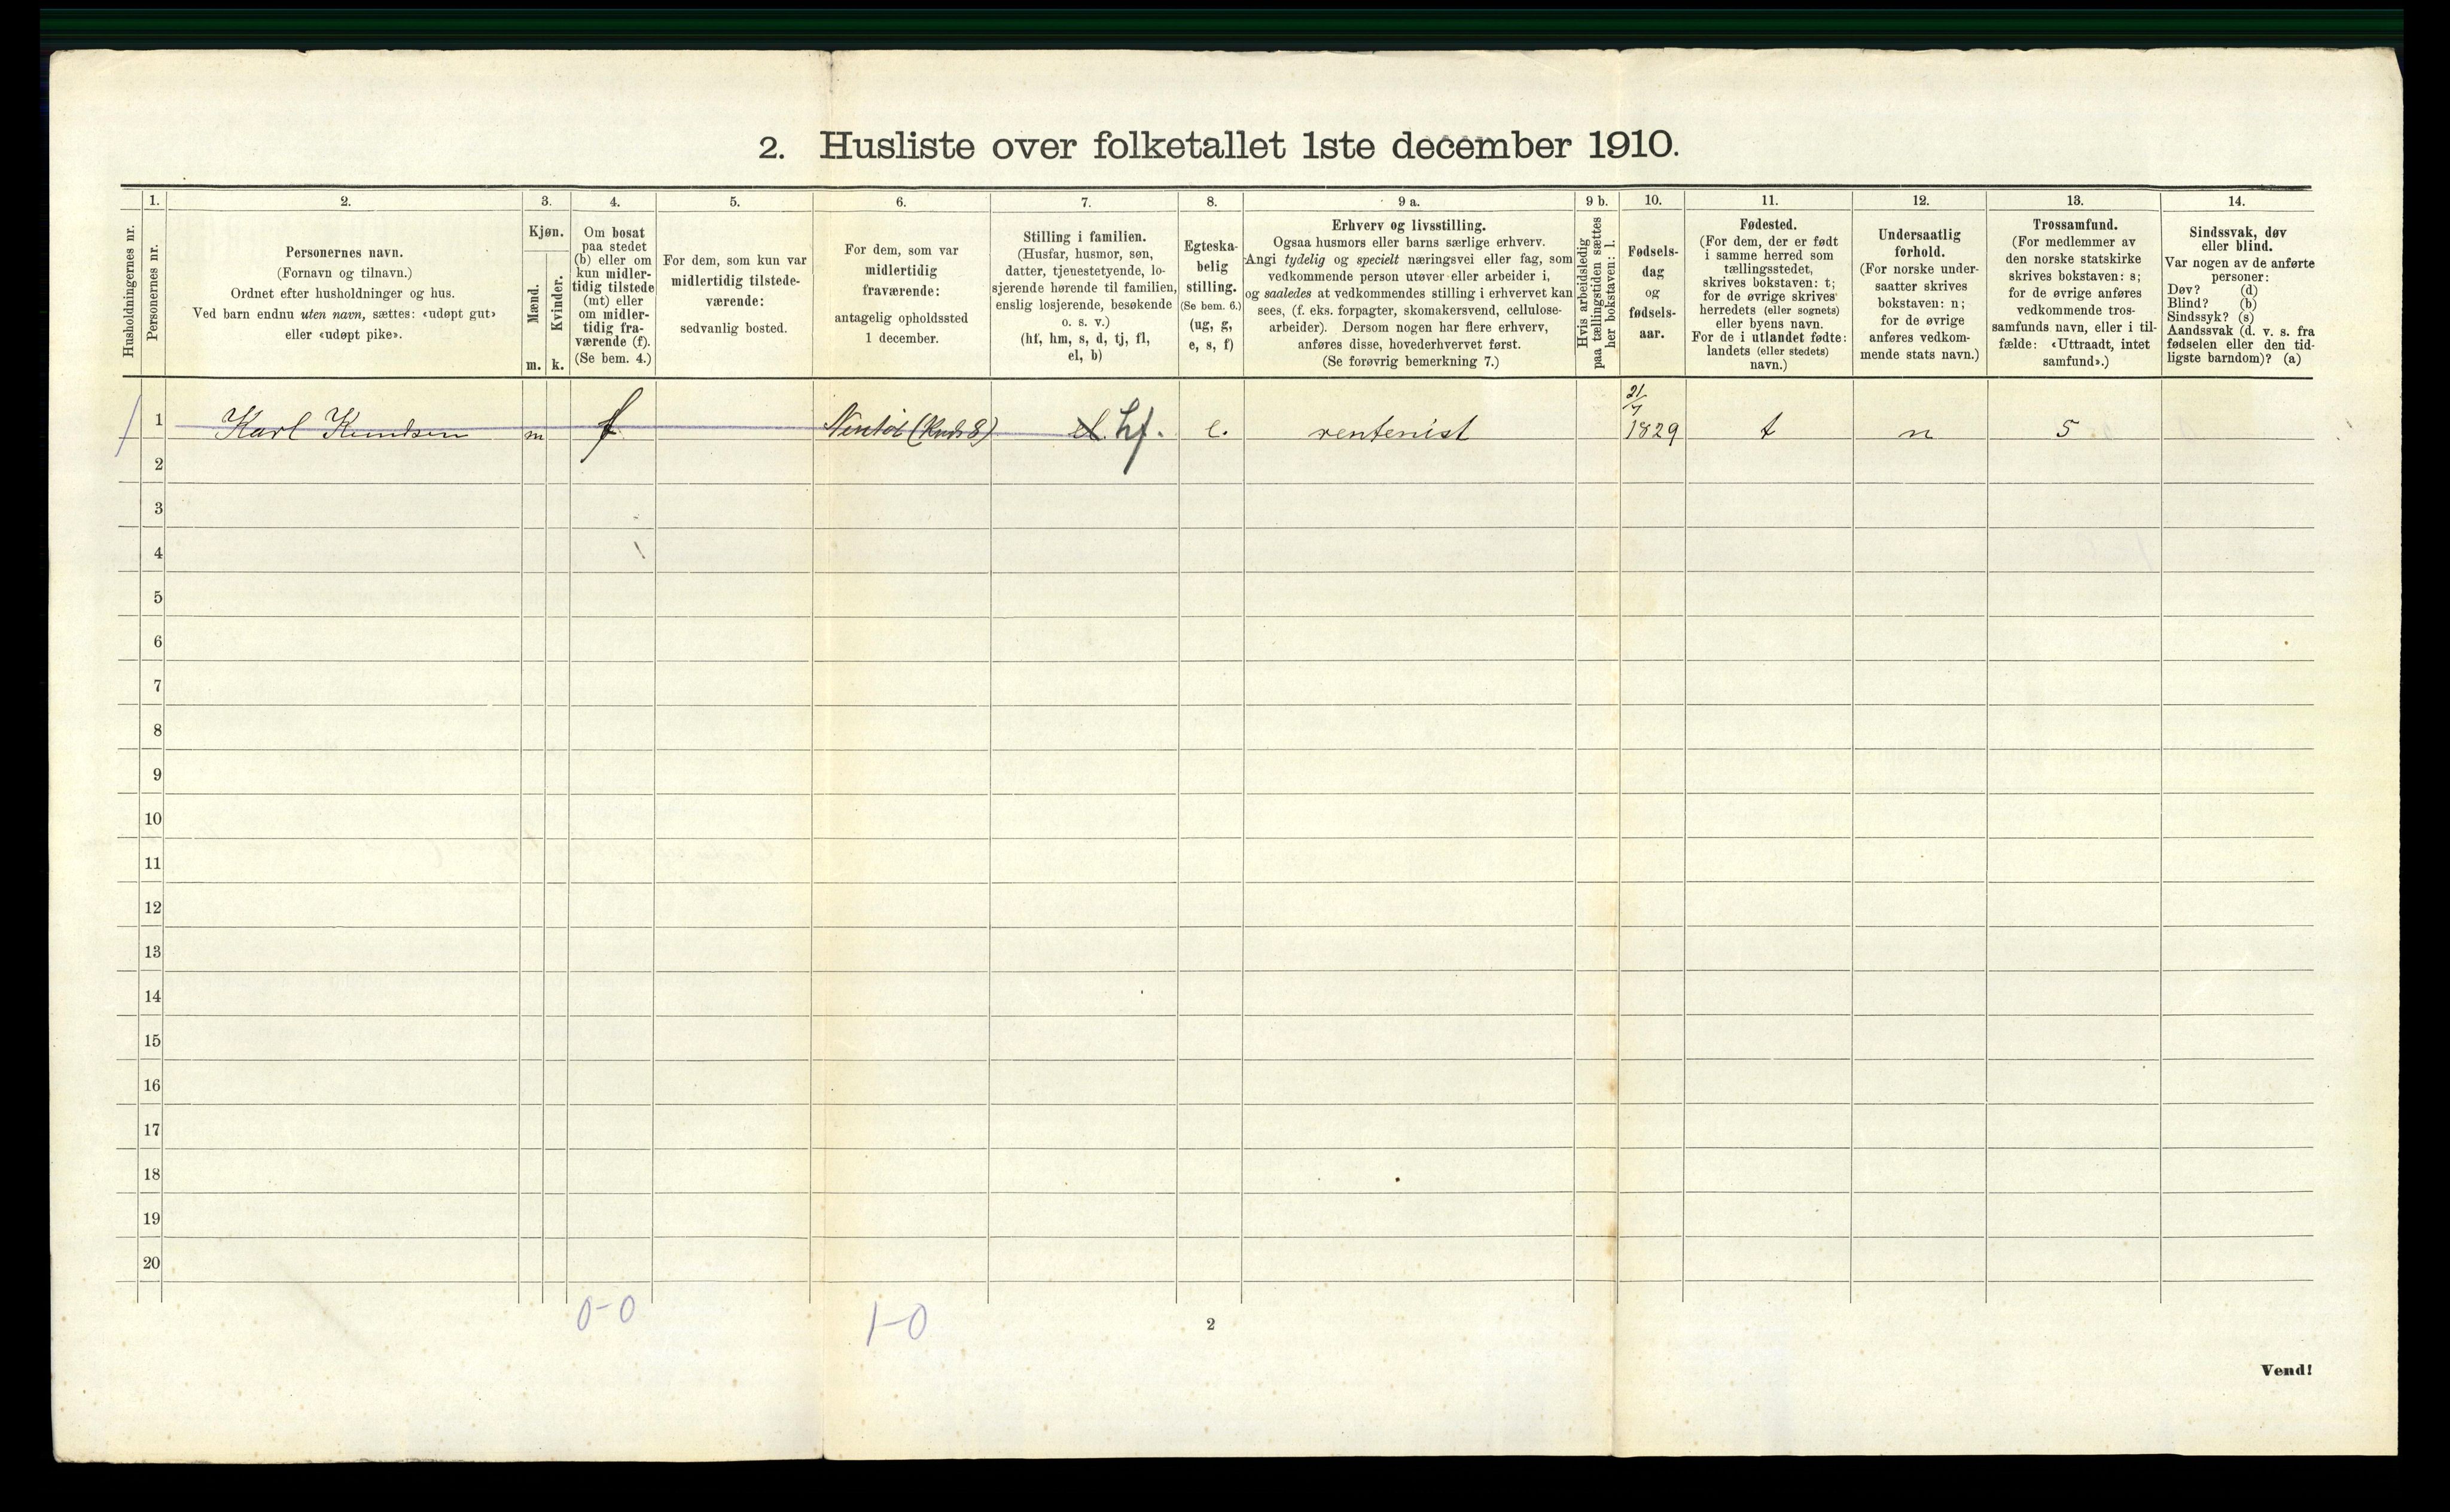 2. Husliste over folketallet 1ste december 1910.
Husholdningernes nr.
1.
Personernes nr.
2.
Personernes navn.
(Fornavn og tilnavn.)
Ordnet efter husholdninger og hus.
Ved barn endnu uten navn, sættes: «udøpt gut»
eller «udøpt pike».
3.
Kjøn.
Mænd.
m.
Kvinder.
k.
4.
Om bosat
paa stedet
(b) eller om
kun midler-
tidig tilstede
(mt) eller
om midler-
tidig fra-
værende (f).
(Se bem. 4.)
5.
For dem, som kun var
midlertidig tilstede-
værende:
sedvanlig bosted.
6.
For dem, som var
midlertidig
fraværende:
antagelig opholdssted
1 december.
7.
Stilling i familien.
(Husfar, husmor, søn,
datter, tjenestetyende, lo-
sjerende hørende til familien,
enslig losjerende, besøkende
o. s. v.)
(hf, hm, s, d, tj, fl,
el, b)
8.
Egteska-
belig
stilling.
(Se bem. 6.)
(ug, g,
e, s, f)
9 a.
Erhverv og livsstilling.
Ogsaa husmors eller barns særlige erhverv.
Angi tydelig og specielt næringsvei eller fag, som
vedkommende person utøver eller arbeider i,
og saaledes at vedkommendes stilling i erhvervet kan
sees, (f. eks. forpagter, skomakersvend, cellulose-
arbeider). Dersom nogen har flere erhverv,
anføres disse, hovederhvervet først.
(Se forøvrig bemerkning 7.)
9 b.
Hvis arbeidsledig
paa tællingstiden sættes
her bokstaven: l.
10.
Fødsels-
dag
og
fødsels-
aar.
11.
Fødested.
(For dem, der er født
i samme herred som
tællingsstedet,
skrives bokstaven: t;
for de øvrige skrives
herredets (eller sognets)
eller byens navn.
For de i utlandet fødte:
landets (eller stedets)
navn.)
12.
Undersaatlig
forhold.
(For norske under-
saatter skrives
bokstaven: n;
for de øvrige
anføres vedkom-
mende stats navn.)
13.
Trossamfund.
(For medlemmer av
den norske statskirke
skrives bokstaven: s;
for de øvrige anføres
vedkommende tros-
samfunds navn, eller i til-
fælde: «Uttraadt, intet
samfund».)
14.
Sindssvak, døv
eller blind.
Var nogen av de anførte
personer:
Døv? (d)
Blind? (b)
Sindssyk? (s)
Aandssvak (d. v. s. fra
fødselen eller den tid-
ligste barndom)? (a)
1 Karl Knudsen m f el. hf. e. rentenist 21/7 1829 t n s
2
3
4
5
6
7
8
9
10
11
12
13
14
15
16
17
18
19
20
0-0
1-0
2
Vend!